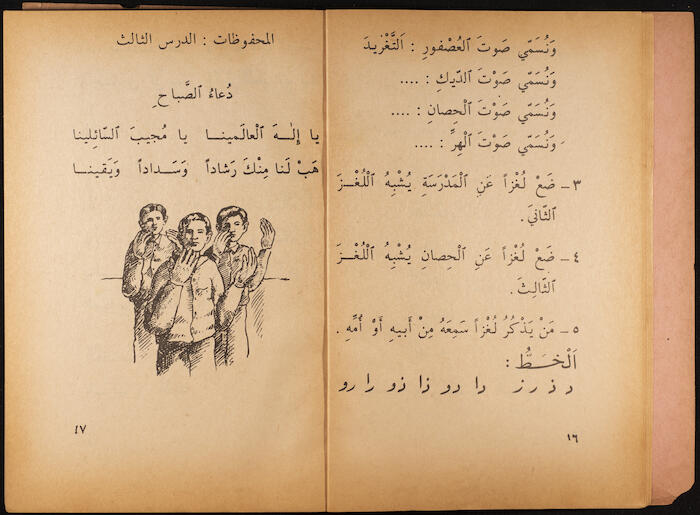 وَنُسَمّي صَوتَ العُصْفورِ : اَلتَّغْريدَ
وَنُسَمّي صَوْتَ الدّيكِ : ....
وَنُسَمّي صَوْتَ الْحِصانِ : ....
وَنُسَمّي صَوْتَ الْهِرِّ : ....
٣ ـ ضَعْ لُغْزاً عَنِ الْمَدْرَسَةِ يُشْبِهُ اللُّغْـزَ
الثّانيَ .
٤ ـ ضَعْ لُغْزاً عَنِ الْحِصانِ يُشْبِهُ اللُّغْـزَ
الثّالِثَ .
٥ ـ مَنْ يَذْكُرُ لُغْزاً سَمِعَهُ مِنْ أَبيهِ أَوْ أُمِّهِ .
اَلْخَـطُّ :
د ذ ر ز دا دو ذا ذو را رو
١٦
المحفوظات : الدرس الثالث
دُعاءُ الصَّباحِ
يا إِلـهَ الْعالَمينـا يا مُجيبَ السّائِلينا
هَبْ لَنا مِنْكَ رَشاداً وَسَـداداً وَيَقينـا
١٧